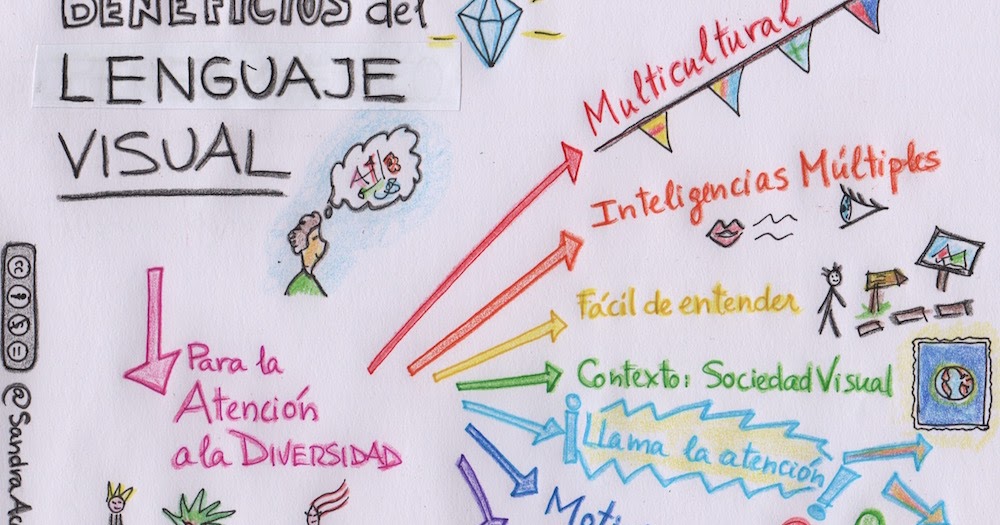 BENEFICIOS del
LENGUAJE
VISUAL
Multicultural
Inteligencias Múltiples
Fácil de entender
Contexto: Sociedad Visual
¡Llama la atención!
Para la
Atención
a la DIVERSIDAD